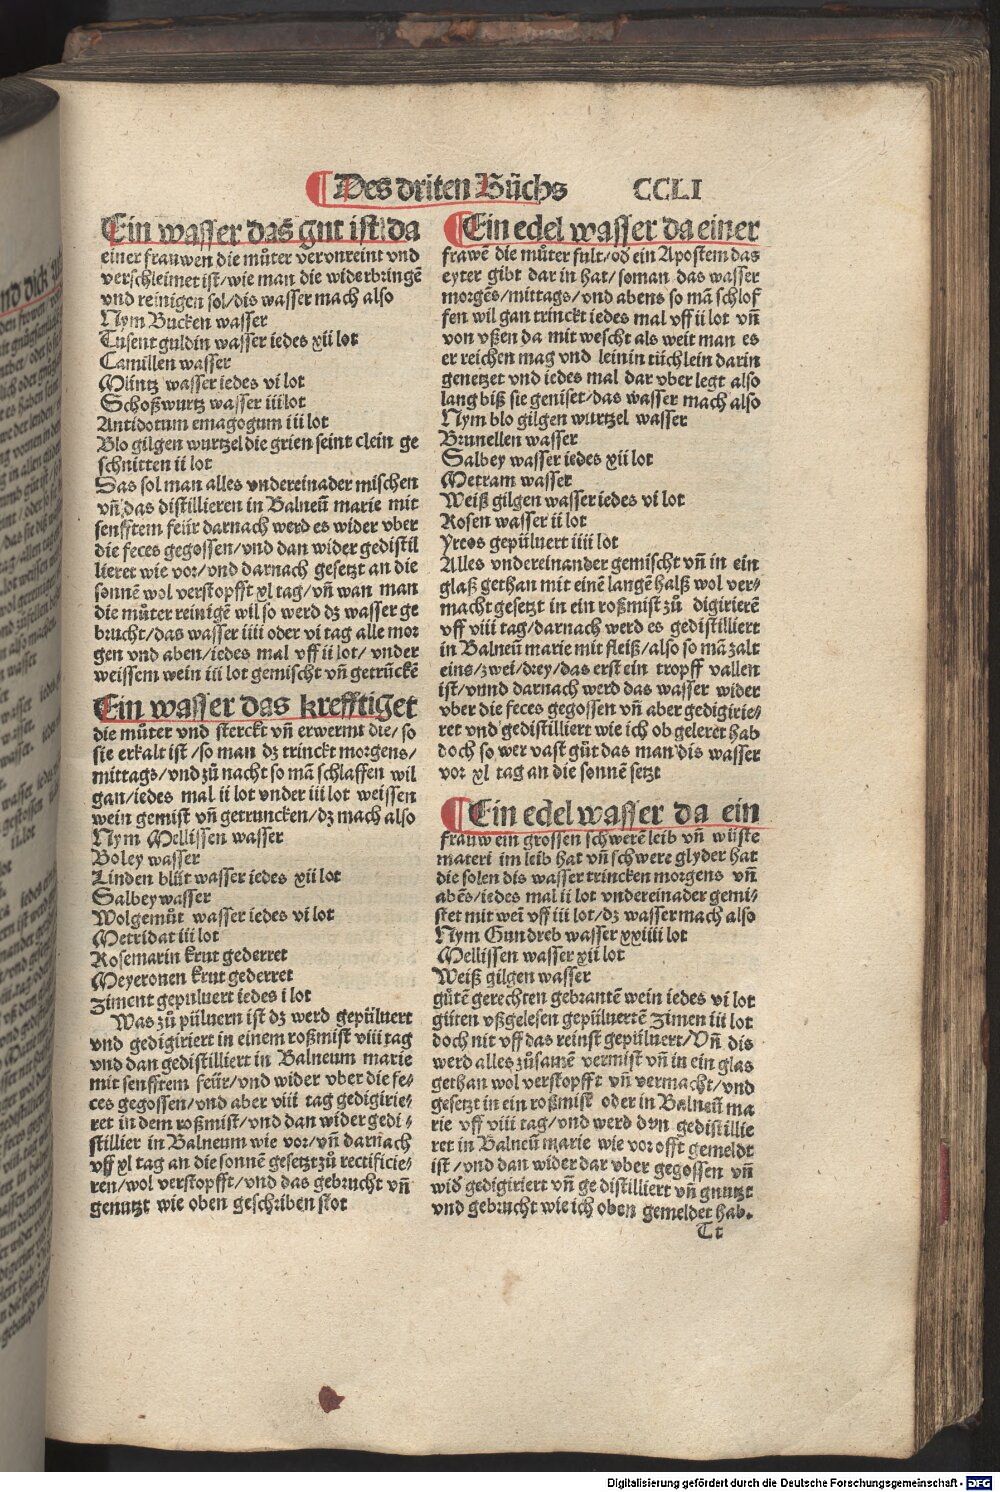 Des driten Bůchs CCLI
Ein wasser das gut ist da
einer frauwen die můter verunreint vnd
verschleimet ist/wie man die widerbringē
vnd reinigen sol/dis wasser mach also
Nym Bucken wasser
Tusent guldin wasser iedes xii lot
Camillen wasser
Müntz wasser iedes vi lot
Schoßwurtz wasser iii lot
Antidotum emagogum iii lot
Blo gilgen wurtzel die grien seint clein ge
schnitten ii lot
Das sol man alles vndereinader mischen
vn̄ das distillieren in Balneū marie mit
senfftem feür darnach werd es wider vber
die feces gegossen/vnd dan wider gedistil
lieret wie vor/vnd darnach gesetzt an die
sonnē wol verstopfft xl tag/vn̄ wan man
die můter reinigē wil so werd dz wasser ge
brucht/das wasser iiii oder vi tag alle mor
gen vnd aben/iedes mal vff ii lot/vnder
weissem wein iii lot gemischt vn̄ getrūckē
Ein wasser das krefftiget
die můter vnd sterckt vn̄ erwermt die/so
sie erkalt ist/so man dz trinckt morgens/
mittags/vnd zů nacht so mā schlaffen wil
gan/iedes mal ii lot vnder iii lot weissen
wein gemist vn̄ getruncken/dz mach also
Nym Mellissen wasser
Boley wasser
Linden blüt wasser iedes xii lot
Salbey wasser
Wolgemůt wasser iedes vi lot
Metridat iii lot
Rosemarin krut gederret
Meyeronen krut gederret
ziment gepuluert iedes i lot
Was zů püluern ist dz werd gepüluert
vnd gedigiriert in einem roßmist viii tag
vnd dan gedistilliert in Balneum marie
mit senfftem feür/vnd wider vber die fe⸗
ces gegossen/vnd aber viii tag gedigirie⸗
ret in dem roßmist/vnd dan wider gedi⸗
stillier in Balneum wie vor/vn̄ darnach
vff xl tag an die sonnē gesetzt zů rectificie⸗
ren/wol verstopfft/vnd das gebrucht vn̄
genutzt wie oben geschriben stot
Ein edel wasser da einer
frawē die můter fult/od ein Apostem das
eyter gibt dar in hat/so man das wasser
morgēs/mittags/vnd abens so mā schlof
fen wil gan trinckt iedes mal vff ii lot vn̄
von vßen da mit wescht als weit man es
er reichen mag vnd leinin tüchlein darin
genetzet vnd iedes mal dar vber legt also
lang biß sie geniset/das wasser mach also
Nym blo gilgen wurtzel wasser
Brunellen wasser
Salbey wasser iedes xii lot
Metram wasser
Weiß gilgen wasser iedes vi lot
Rosen wasser ii lot
Yreos gepüluert iiii lot
Alles vndereinander gemischt vn̄ in ein
glaß gethan mit einē langē halß wol ver⸗
macht gesetzt in ein roßmist zů digirierē
vff viii tag/darnach werd es gedistilliert
in Balneū marie mit fleiß/also so mā zalt
eins/zwei/drey/das erst ein tropff vallen
ist/vnnd darnach werd das wasser wider
vber die feces gegossen vn̄ aber gedigirie⸗
ret vnd gedistilliert wie ich ob geleret hab
doch so wer vast gůt das man dis wasser
vor xl tag an die sonnē setzt
Ein edel wasser da ein
frauw ein grossen schwerē leib vn̄ wüste
materi im leib hat vn̄ schwere glyder hat
die solen dis wasser trincken morgens vn̄
abēs/iedes mal ii lot vndereinader gemi⸗
stet mit wei̅ vff iii lot/dz wasser mach also
Nym Gundreb wasser xxiiii lot
Mellissen wasser xii lot
Weiß gilgen wasser
gůtē gerechten gebrantē wein iedes vi lot
gůten vßgelesen gepüluertē zimen iii lot
doch nit vff das reinst gepüluert/Vn̄ dis
werd alles zůsamē vermist vn̄ in ein glas
gethan wol verstopfft vn̄ vermacht/vnd
gesetzt in ein roßmist oder in Balneū ma
rie vff viii tag/vnd werd dan gedistillie
ret in Balneū marie wie vor offt gemeldt
ist/vnd dan wider dar vber gegossen vn̄
wid gedigiriert vn̄ ge distilliert vn̄ gnutzt
vnd gebrucht wie ich oben gemeldet hab.
Tt
Digitalisierung gefördert durch die Deutsche Forschungsgemeinschaft - DFG